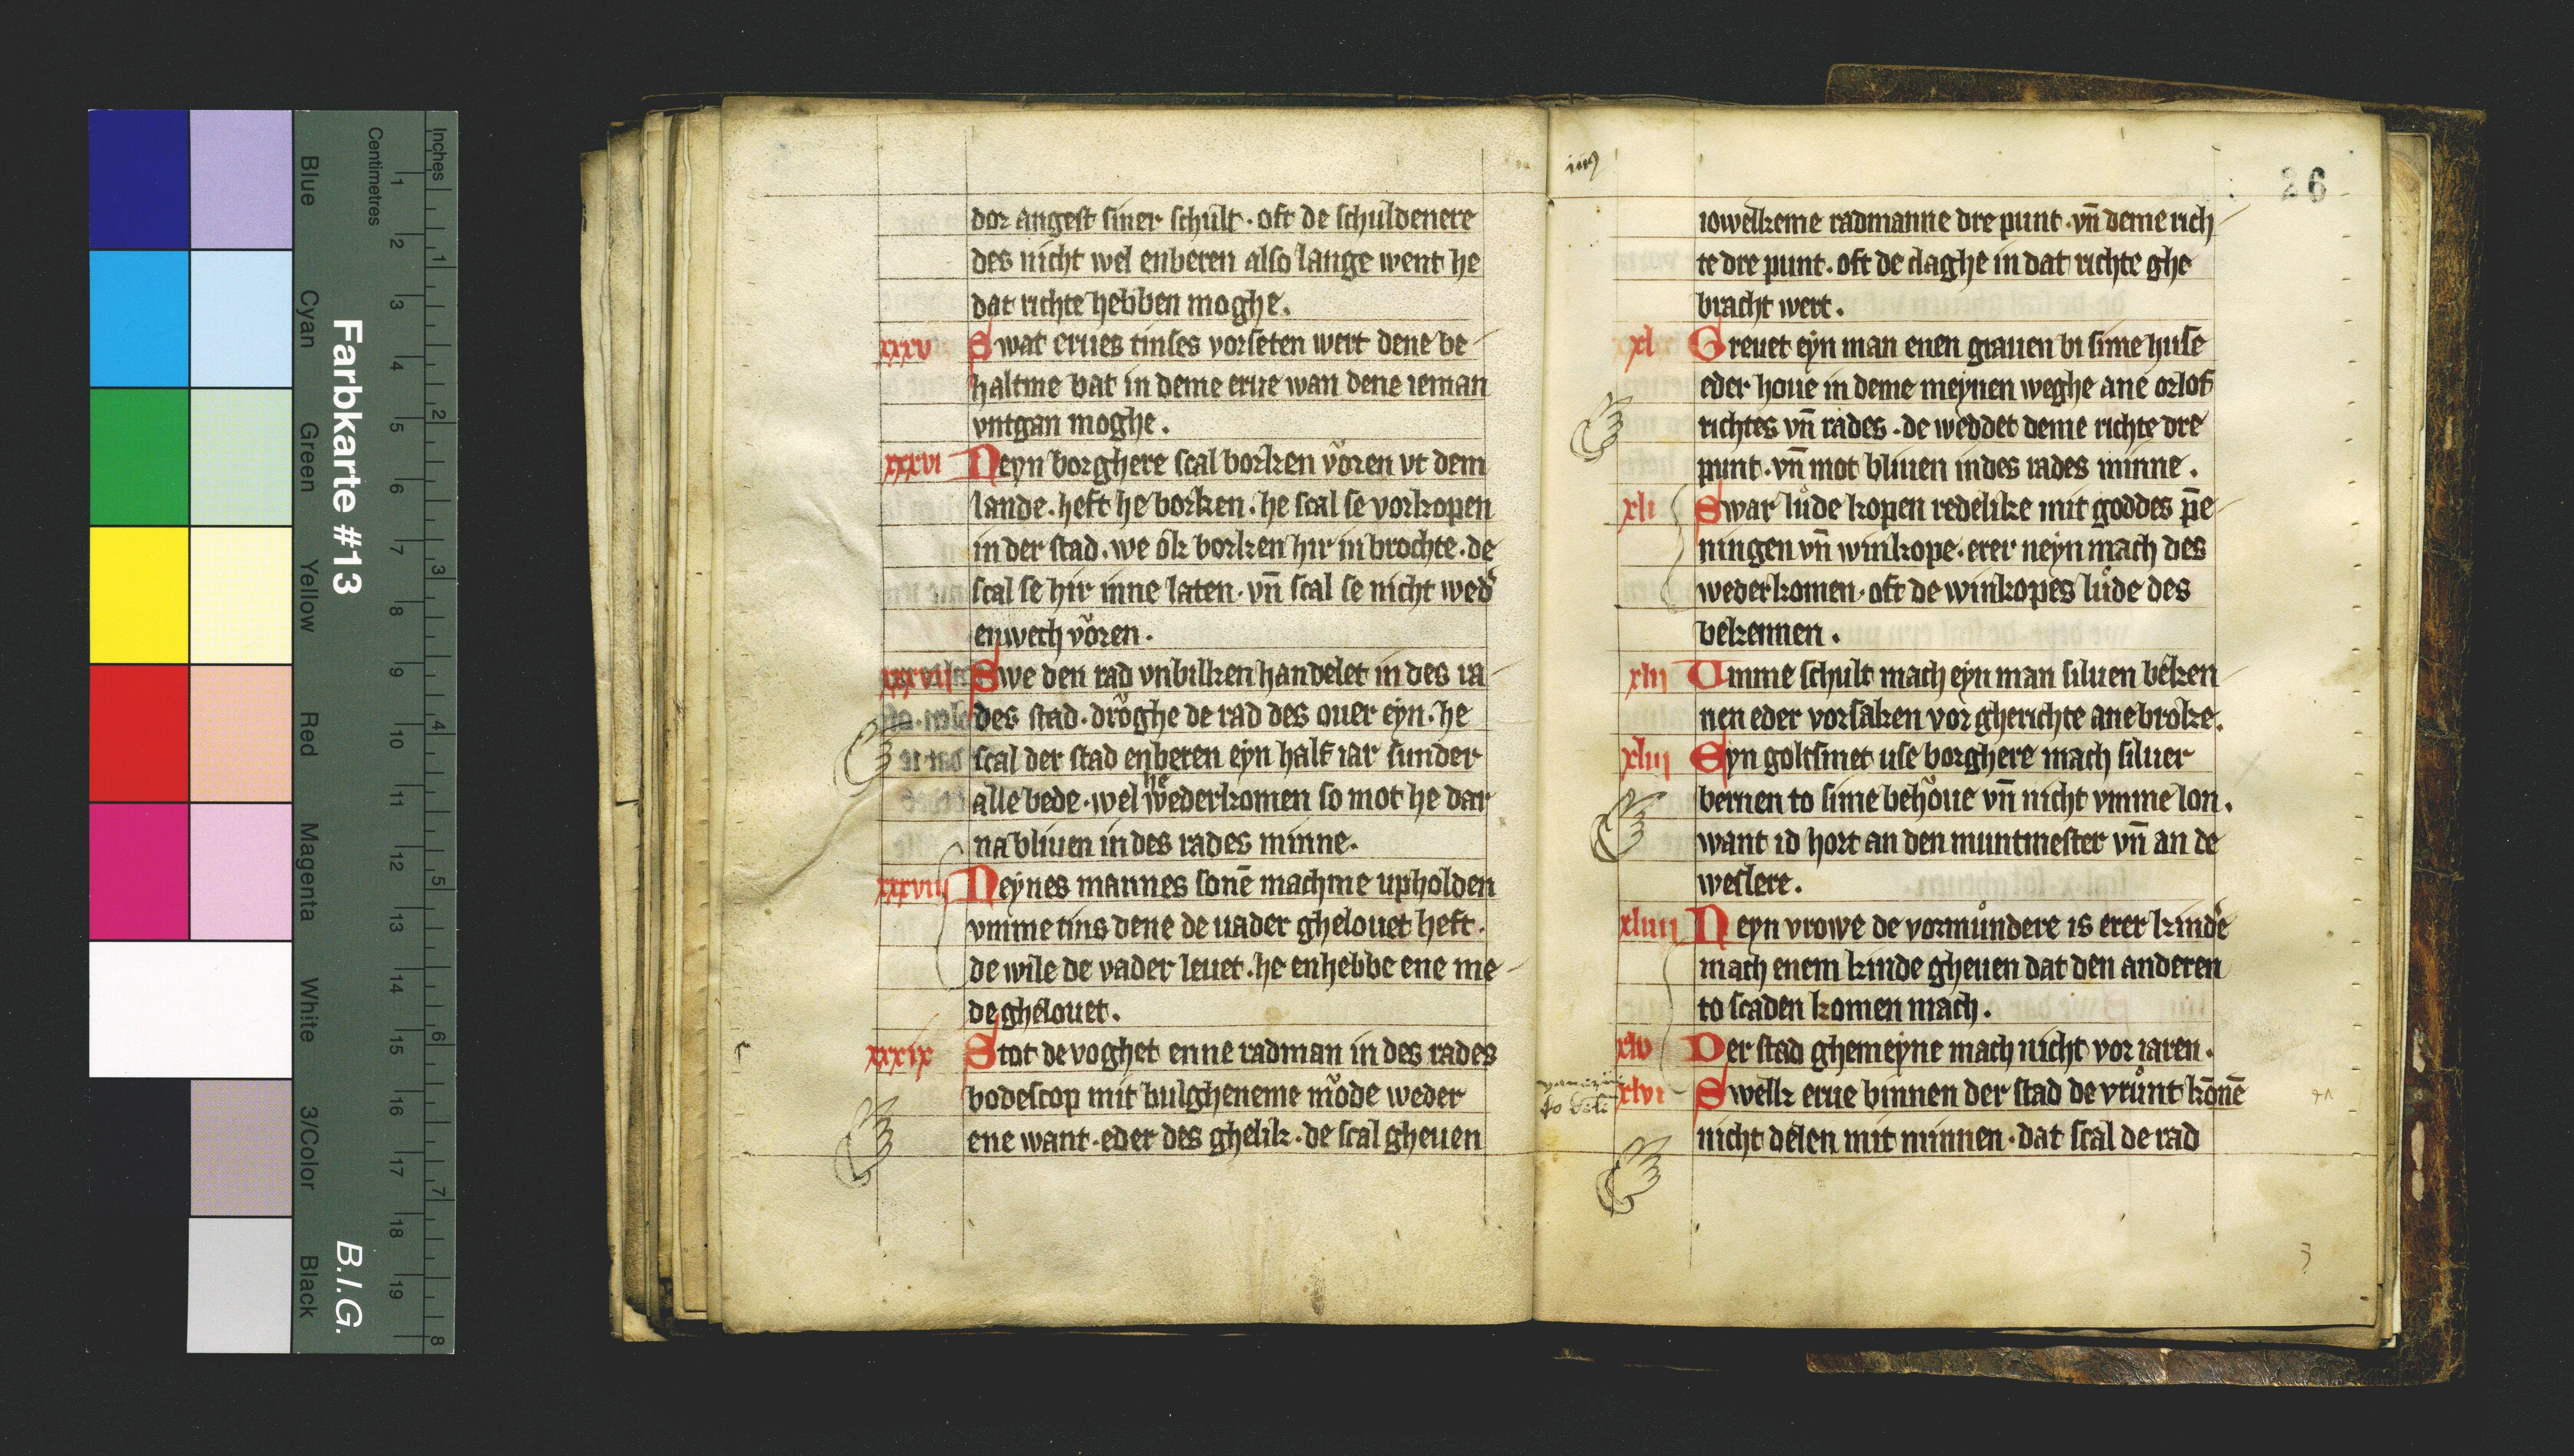 dor angest siner schult · oft de schuldenere
des nicht wel enberen also lange went he
dat richte hebben moghe.
xxxv Swat erues tinses vorseten wert dene be
haltme bat in deme erue wan dene ieman
vntgan moghe.
xxxvi Neyn borghere scal borken voͤren vt dem
lande. heft he borken. he scal se vorkopen
in der stad. we ok borken hir in brochte. de
scal se hir inne laten. vn̄ scal se nicht wed̓
enwech voͤren.
xxxvii Swe den rad vnbilken handelet in des ra
des stad. droͤghe de rad des ouer eyn. he
scal der stad enberen eyn half iar sunder
he
alle bede. wel wederkomen so mot he dar
na bliuen in des rades minne.
xxxviii Neynes mannes sone machme upholden
vmme tins dene de uader ghelouet heft.
de wile de vader leuet. he enhebbe ene me
de ghelouet.
xxxix Stot de voghet enne radman in des rades
bodescop mit bulgheneme moͤde weder
ene want. eder des ghelik. de scal gheuen
26
iowelkeme radmanne dre punt. vn̄ deme rich
te dre punt. oft de claghe in dat richte ghe
bracht wert.
xl Greuet eyn man enen grauen bi sime huse
eder houe in deme meynen weghe ane orlof
richtes vn̄ rades. de weddet deme richte dre
punt. vn̄ mot bliuen in des rades minne.
xli Swar luͦde kopen redelike mit goddes pē
ningen vn̄ winkope. erer neyn mach des
wederkomen. oft de winkopes luͦde des
bekennen.
xlii Umme schult mach eyn man siluen beken
nen eder vorsaken vor gherichte ane broke.
xliii Eyn goltsmet use borghere mach siluer
bernen to sime behoͤue vn̄ nicht vmme lon.
want id hort an den muntmester vn̄ an de
weslere.
xliiii Neyn vrowe de vormundere is erer kind̓e
mach enem kinde gheuen dat den anderen
to scaden komen mach.
xlv Der stad ghemeyne mach nicht vor iaren.
xlvi Swelk erue binnen der stad de vruͦnt kōnē
nicht delen mit minnen. dat scal de rad
Farbkarte #13
B.I.G.
Inches 1 2 3 4 5 6 7 8
Centimetres 1 2 3 4 5 6 7 8 9 10 11 12 13 14 15 16 17 18 19
Blue Cyan Green Yellow Red Magenta White 3/Color Black